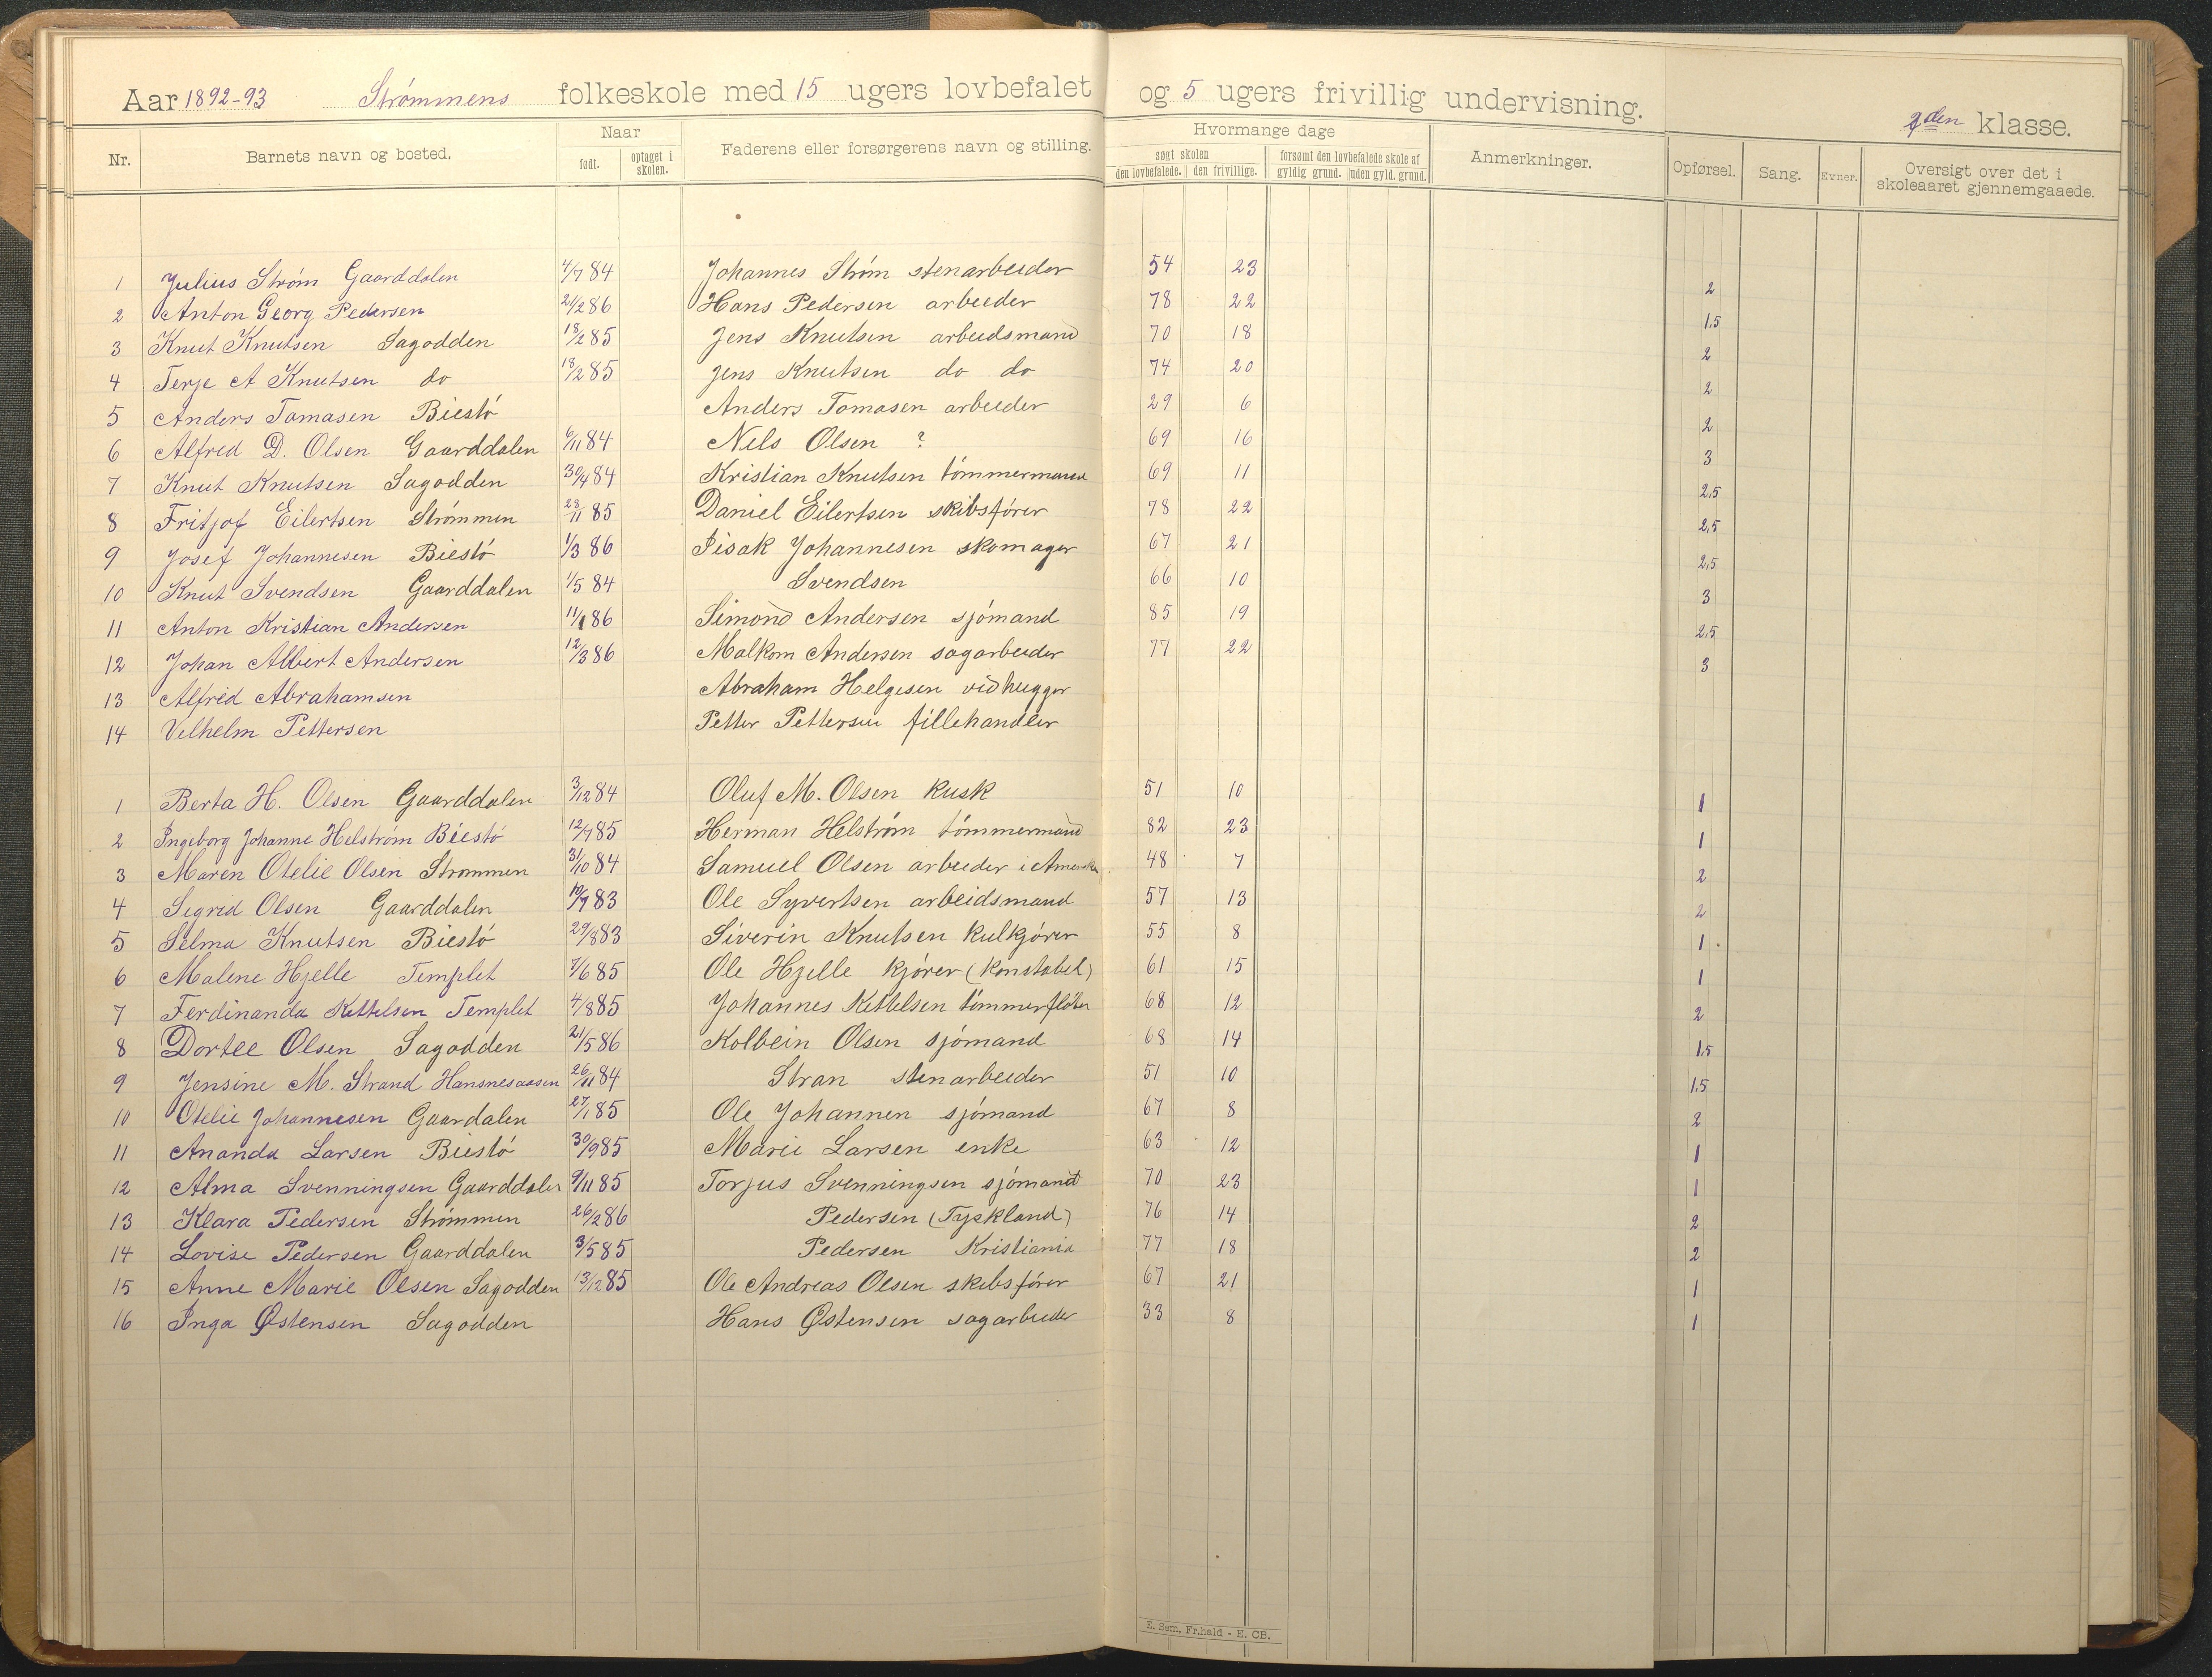 Aar 1892-93 Strømmens folkeskole med 15 ugers lovbefalet og 5 ugers frivillig undervisning. 2den klasse.
Nr. Barnets navn og bosted. Naar født. optaget i skolen. Faderens eller forsørgerens navn og stilling. Hvormange dage søgt skolen den lovbefalede. den frivillige. forsømt den lovbefalede skole af gyldig grund. uden gyld. grund. Anmerkninger. Opførsel. Sang. Evner. Oversigt over det i skoleaaret gjennemgaaede.
1 Julius Strøm Gaarddalen 4/7 84 Johannes Strøm stenarbeider 54 23 2
2 Anton Georg Pedersen 21/2 86 Hans Pedersen arbeider 78 22 1.5
3 Knut Knutsen Sagodden 18/2 85 Jens Knutsen arbeidsmand 70 18 2
4 Terje A Knutsen do 18/2 85 Jens Knutsen do do 74 20 2
5 Anders Tomasen Biestö Anders Tomasen arbeider 29 6 2
6 Alfred D. Olsen Gaarddalen 6/11 84 Nels Olsen ? 69 16 3
7 Knut Knutsen Sagodden 30/4 84 Kristian Knutsen tømmermand 69 11 2,5
8 Fritjof Eilertsen Strømmen 28/11 85 Daniel Eilertsen skibsfører 78 22 2,5
9 Josef Johannesen Biestö 1/3 86 Iisak Johannesen skomager 67 21 2,5
10 Knut Svendsen Gaarddalen 1/5 84 Svendsen 66 10 3
11 Anton Kristian Andersen 11/1 86 Simond Andersen sjömand 85 19 2,5
12 Johan Albert Andersen 12/3 86 Malkom Andersen sagarbeider 77 22 3
13 Alfred Abrahamsen Abraham Helgesen vedhugger
14 Velhelm Pettersen Petter Pettersen fillehandler
1 Berta H. Olsen Gaarddalen 3/12 84 Oluf M. Olsen Kusk 51 10 1
2 Ingeborg Johanne Helström Biestö 12/7 85 Herman Helström tömmermand 82 23 1
3 Maren Otelie Olsen Strømmen 31/10 84 Samuel Olsen arbeider i Amerika 48 7 2
4 Sigred Olsen Gaarddalen 10/7 83 Ole Syvertsen arbeidsmand 57 13 2
5 Selma Knutsen Biestö 29/8 83 Siverin Knutsen kulkjörer 55 8 1
6 Malene Hjelle Templet 7/6 85 Ole Hjelle kjörer (konstabel) 61 15 1
7 Ferdinanda Kettelsen Templet 4/8 85 Johannes Kettelsen tömmerflöter 68 12 2
8 Dortee Olsen Sagodden 21/5 86 Kolbein Olsen sjömand 68 14 1,5
9 Jensine M. Strand Hansnesaasen 26/11 84 Stran stenarbeider 51 10 1,5
10 Otelie Johannesen Gaardalen 27/1 85 Ole Johannen sjömand 67 8 2
11 Ananda Larsen Biestö 30/9 85 Marie Larsen enke 63 12 1
12 Alma Svenningsen Gaarddalen 9/11 85 Torjus Svenningsen sjömand 70 23 1
13 Klara Pedersen Strømmen 26/2 86 Pedersen (Tyskland) 76 14 2
14 Lovise Pedersen Gaarddalen 3/5 85 Pedersen Kristiania 77 18 2
15 Anne Marie Olsen Sagodden 13/12 85 Ole Andreas Olsen skibsfører 67 21 1
16 Inga Østensen Sagodden Hans Østensen sagarbeider 33 8 1
E. Sem, Fr.hald - E. CB.